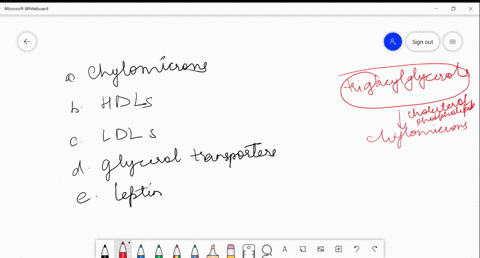 Microsoft Whiteboard
Sign out
a. Chylomicrons
b. HDLs
c. LDLs
d. glycerol transporters
e. leptin
triglacylglycerols
cholesterol
phospholipids
chylomicrons